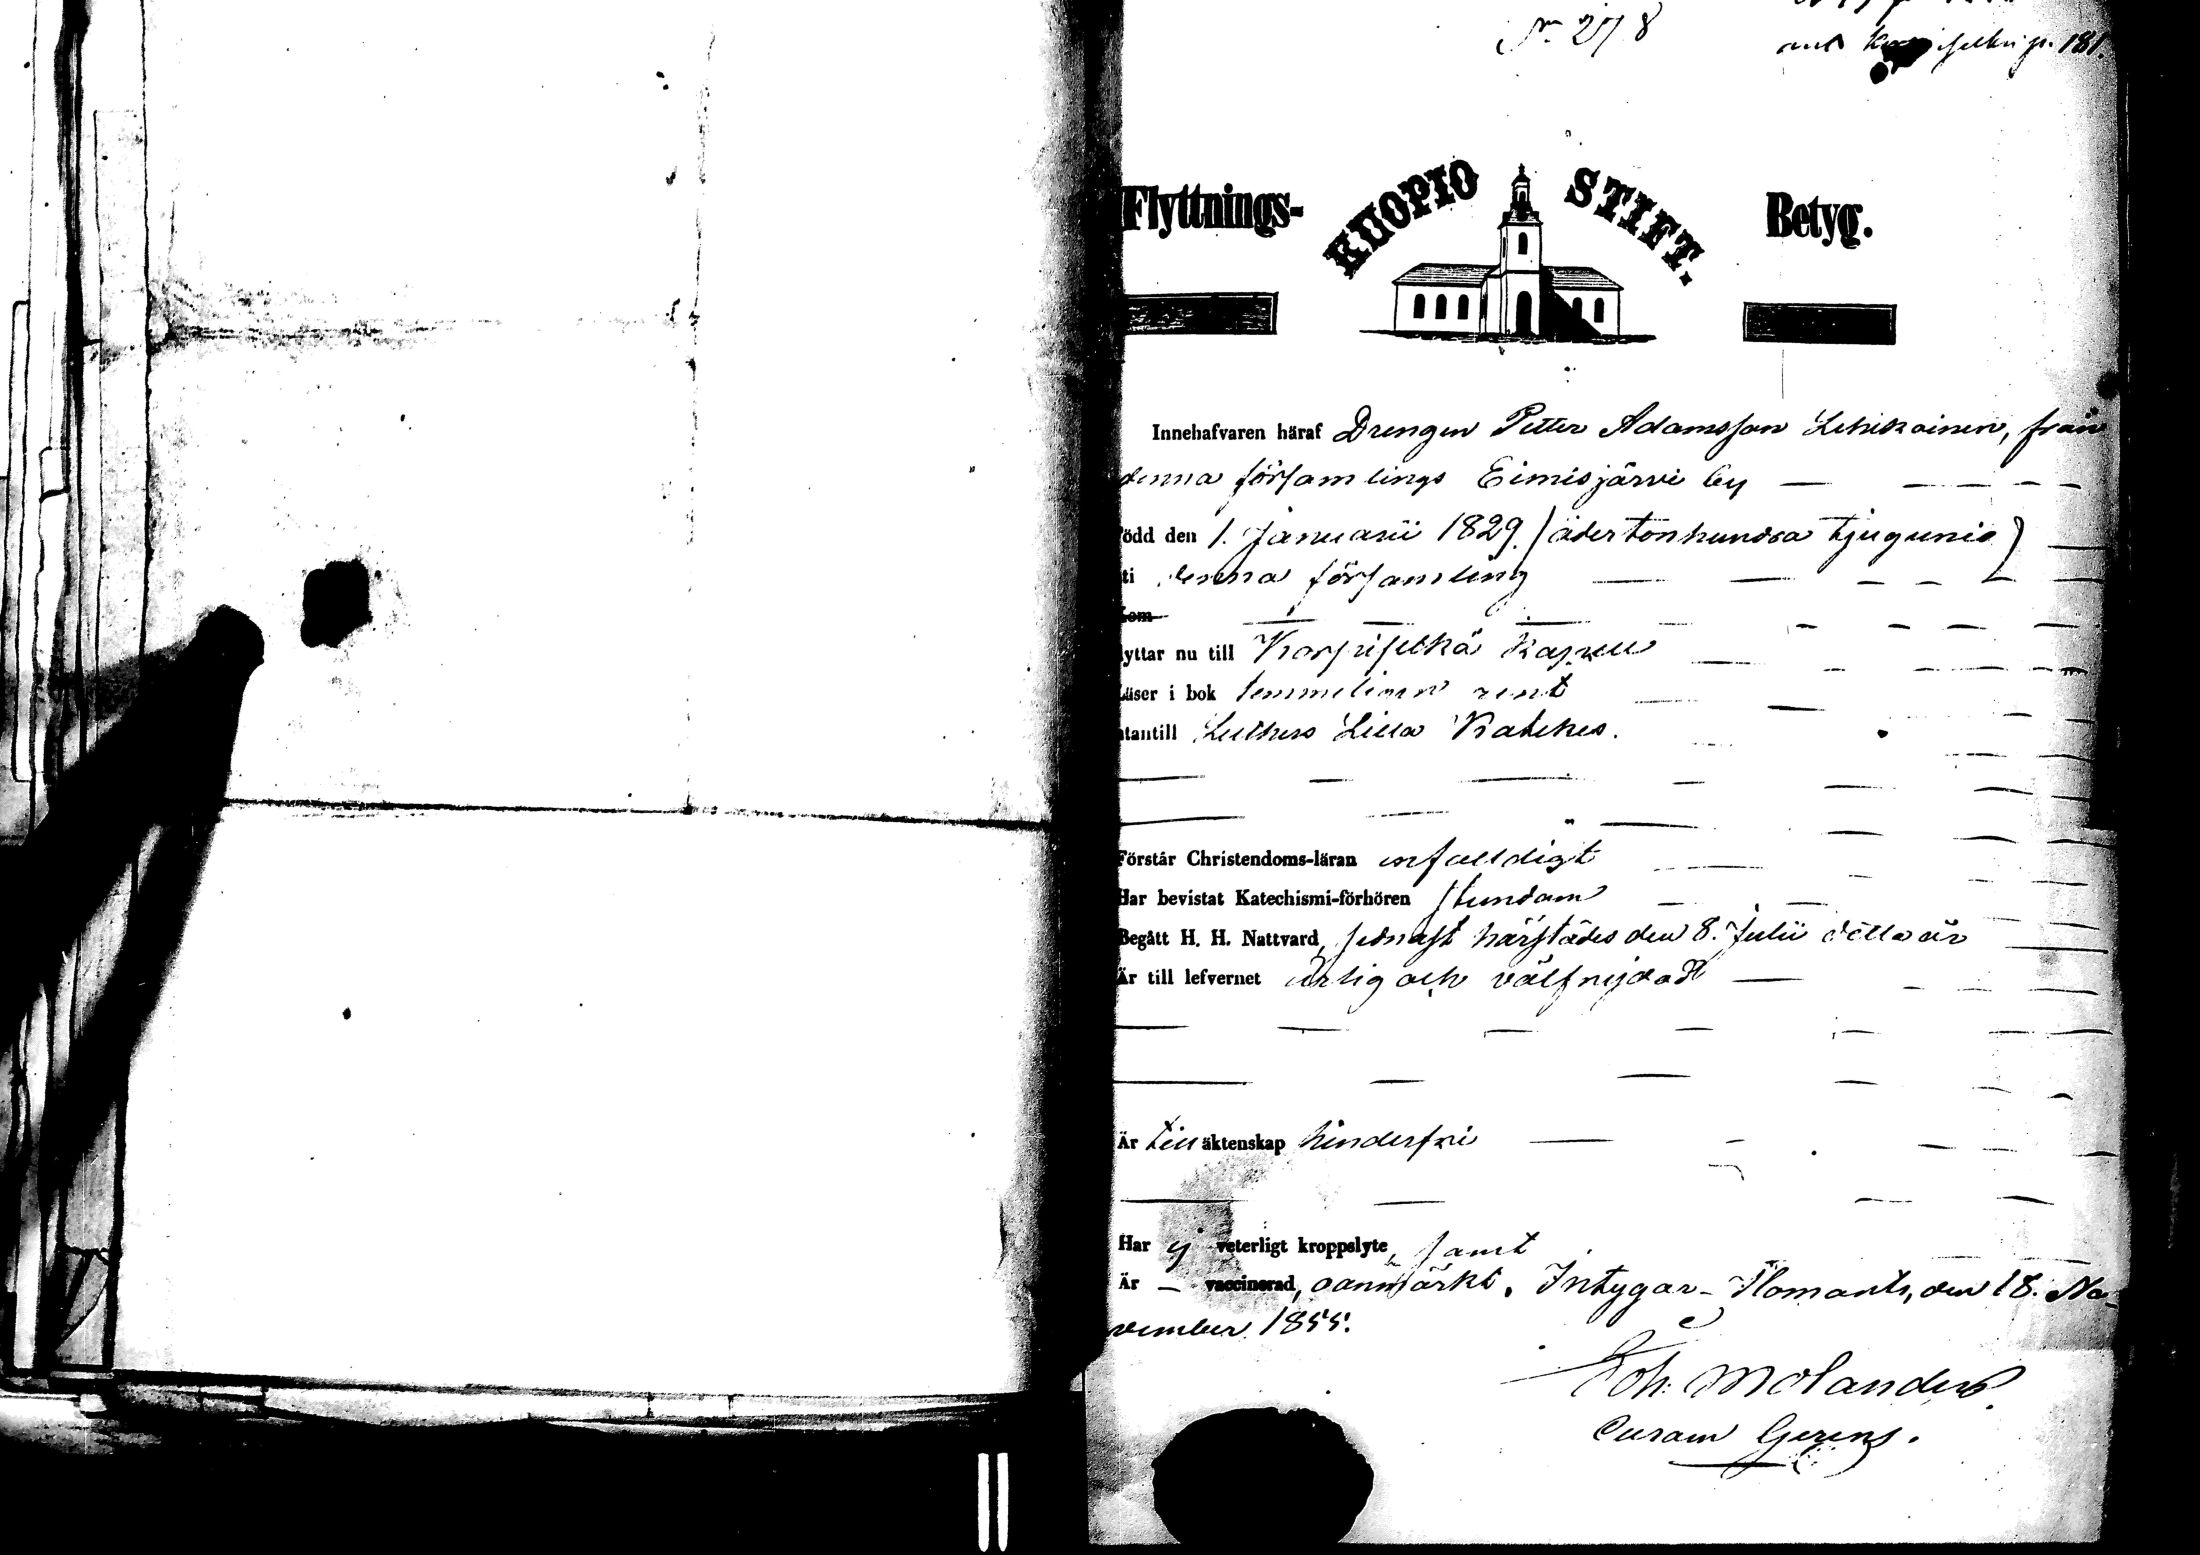 No 278
Korpiselki p. 181.
Flyttnings- KUOPIO STIFT. Betyg.
Innehafvaren häraf Drengen Petter Adamsson Lehikoinen, från
denna församlings Eimisjärvi by
född den 1. Januarii 1829. (adertonhundra tjugunio)
uti denna församling
Kom
flyttar nu till Korpiselkä Kapell
Läser i bok temmeligen rent
utantill Luthers Lilla Katekes.
Förstår Christendoms-läran enfalldigt
Har bevistat Katechismi-förhören stundom
Begått H. H. Nattvard, sednast härstädes den 8. Julii detta år
Är till lefvernet ärlig och välfrejdad
Är till äktenskap hinderfri
Har ej veterligt kroppslyte, samt
Är — vaccinerad, oanmärkt. Intygar - Ilomants, den 18. No-
vember 1855.
Joh: Molander.
Curam Gerens.